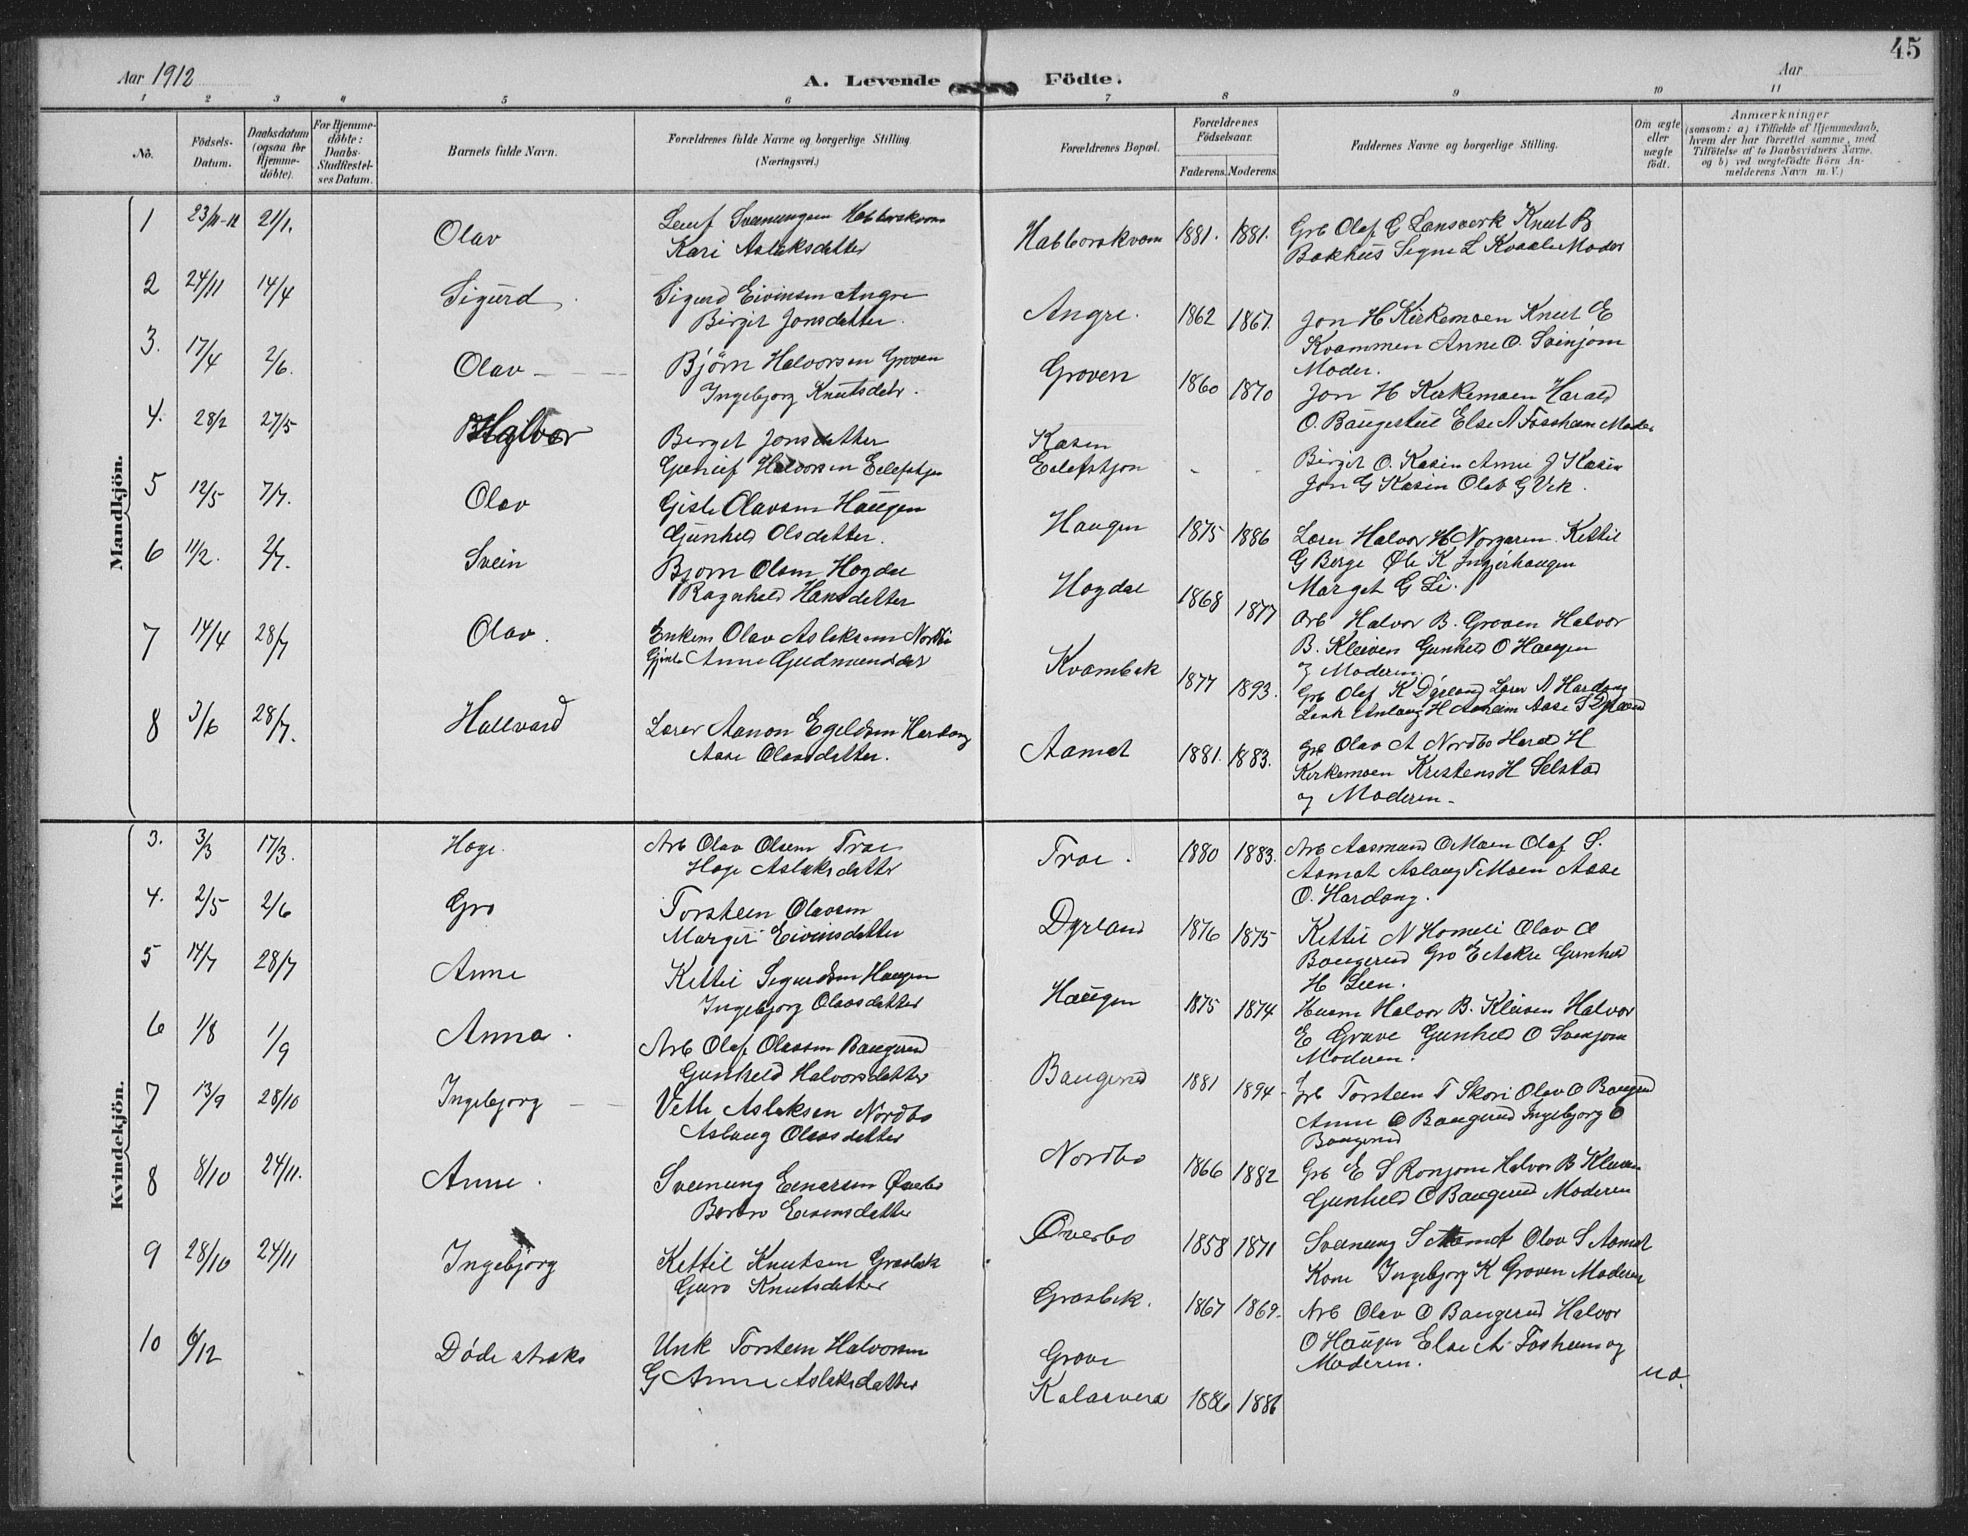 45
Aar 1912
A. Levende Födte.
Aar
1 2 3 4 5 6 7 8 9 10 11
No.
Födsels-Datum.
Daabsdatum (ogsaa for Hjemme-döbte).
For Hjemme-döbte: Daabs-Stadfæstel-ses Datum.
Barnets fulde Navn.
Forældrenes fulde Navne og borgerlige Stilling (Næringsvei.)
Forældrenes Bopæl.
Forældrenes Födselsaar.
Faderens. Moderens.
Faddernes Navne og borgerlige Stilling.
Om ægte eller uægte födt.
Anmærkninger
(saasom: a) i Tilfælde af Hjemmedaab, hvem der har forrettet samme, med Tilföielse af to Daabsvidners Navne, og b) ved uægtefödte Börn Anmelderens Navn m. V.)
Mandkjön.
1 21/1. Olav
Kari Aslaksdatter
1881. 1881. Grb Olaf G Lansverk Knut B
Bakhus Signe L Kvaale Moder
2 24/11 14/4 Sigurd
Sigurd Eivinsen Angre
Birgit Jonsdatter.
Angre. 1862 1867. Jon H Kirkemoen Knut E
Kvammen Anne O. Svinjom
Moder.
3. 17/4 2/6. Olav
Björn Halvorsen Groven
Ingebjorg Knutsdatr.
Groven 1860 1870 Jon H Kirkemoen Harald
O. Baugestul Else A Fossheim Moder
4. 28/2 27/5 Halvor
Birgit Jonsdatter
Halvorsen
Kasen
Birgit O. Kasin Anne J Kasin
Jon G Kasin Olav G Vik.
5 12/5 7/7. Olav
Gisle Olavsen Haugen
Gunhild Olsdatter.
Haugen 1875 1886 Lærer Halvor H Norgaren Kittil
G Berge Ole K
Marget G Li.
6 11/2. 7/7. Svein
Bjorn Olsen Hogdal
Ragnhild Hansdatter
Hogdal 1868 1877 Arb Halvor B. Groven Halvor
B. Kleiven Gunhild O Haugen
og Moderen.
7 14/4 28/7 Olav.
Enkem Olav Aslaksen Nordbö
Anne Gudmundsdtr
Kvambek 1877 1893. Grb Olaf K Dyrland Lærer A Hardang
8 3/6 28/7. Hallvard
Lærer Aanon Egildsen Hardang
Aase Olavsdatter.
Aamot 1881. 1883. Grb Olav A Nordbö Harald H
Kirkemoen Kristens H Selstad
og Moderen.
Kvindekjön.
3. 3/3 17/3. Hæge
Arb Olav Olsen Træ
Hæge Aslaksdatter
Træ. 1880 1883. Arb Aasmund O Moen Olaf S.
Aamot Aslaug T Moen Aase
O. Hardang.
4. 2/5 2/6 Gro
Torstein Olavsen
Margit Eivinsdatter
Dyrland 1876 1875 Kittil N Homeli Olav O
Baugerud Gro E Askre Gunhild
H Lien.
5 14/7 28/7 Anne
Kittil Sigurdsen Haugen
Ingebjorg Olavsdatter
Haugen 1875 1874 Husm Halvor B. Kleiven Halvor
E Grave Gunhild O Svenjom
Moderen.
6 1/8 1/9 Anna.
Arb Olaf Olavsen Baugerud
Gunhild Halvorsdatter
Baugerud 1881 1894 Grb Torstein T Skori Olav O Baugerud
Anne O Baugerud Ingebjorg O
Baugerud
7 13/9 28/10 Ingebjorg
Vetle Aslaksen Nordbö
Aslaug Olavsdatter
Nordbö 1866 1882 Grb E S Ronjom Halvor B Kleiven
Gunhild O Baugerud Moderen
8 8/10 24/11. Anne.
Sveinung Einarsen Överbö
Eivinsdatter
Överbö 1858 1871 Sveinung S Aamot Olav S Aamot
Kone Ingebjorg K Groven Moderen
9 28/10 24/11 Ingebjorg
Kittil Knutsen Grasbek
Guro Knutsdatter
Grasbek. 1867 1869. Arb Olav O Baugerud Halvor
O Haugen Else A Fosheim og
Moderen.
10 6/12 Döde straks
Unk Torstein Halvorsen
G Anne Aslaksdatter
Grave
1886 1886